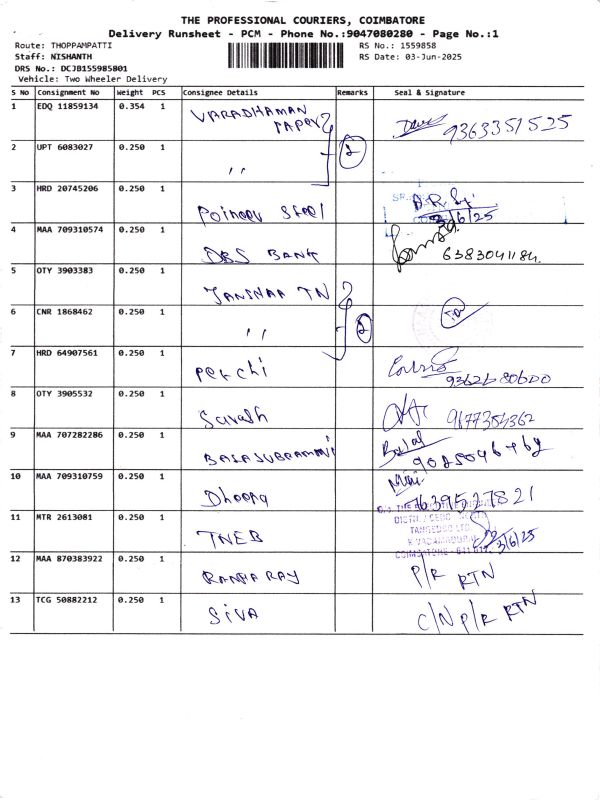 THE PROFESSIONAL COURIERS, COIMBATORE
Delivery Runsheet - PCM - Phone No.:9047080280 - Page No.:1
Route: THOPPAMPATTI RS No.: 1559858
Staff: NISHANTH RS Date: 03-Jun-2025
DRS No.: DCJB155985801
Vehicle: Two Wheeler Delivery
S No Consignment No Weight PCS Consignee Details Remarks Seal & Signature
1 EDQ 11859134 0.354 1 VARADHAMAN
PAPER 9363351525
2 UPT 6083027 0.250 1 2
,,
3 HRD 20745206 0.250 1
Poineer Steel 3/6/25
4 MAA 709310574 0.250 1
DBS BANK 6383041184.
5 OTY 3903383 0.250 1
TN
6 CNR 1868462 0.250 1
,, 2
7 HRD 64907561 0.250 1
Perchi
8 OTY 3905532 0.250 1
9 MAA 707282286 0.250 1
BALASUBRAMANI
10 MAA 709310759 0.250 1
Dheepa 7639527821
11 MTR 2613081 0.250 1
TANGEDCO LTD
TNEB 3/6/25
12 MAA 870383922 0.250 1 P/R RTN
13 TCG 50882212 0.250 1
SIVA C/N P/R RTN